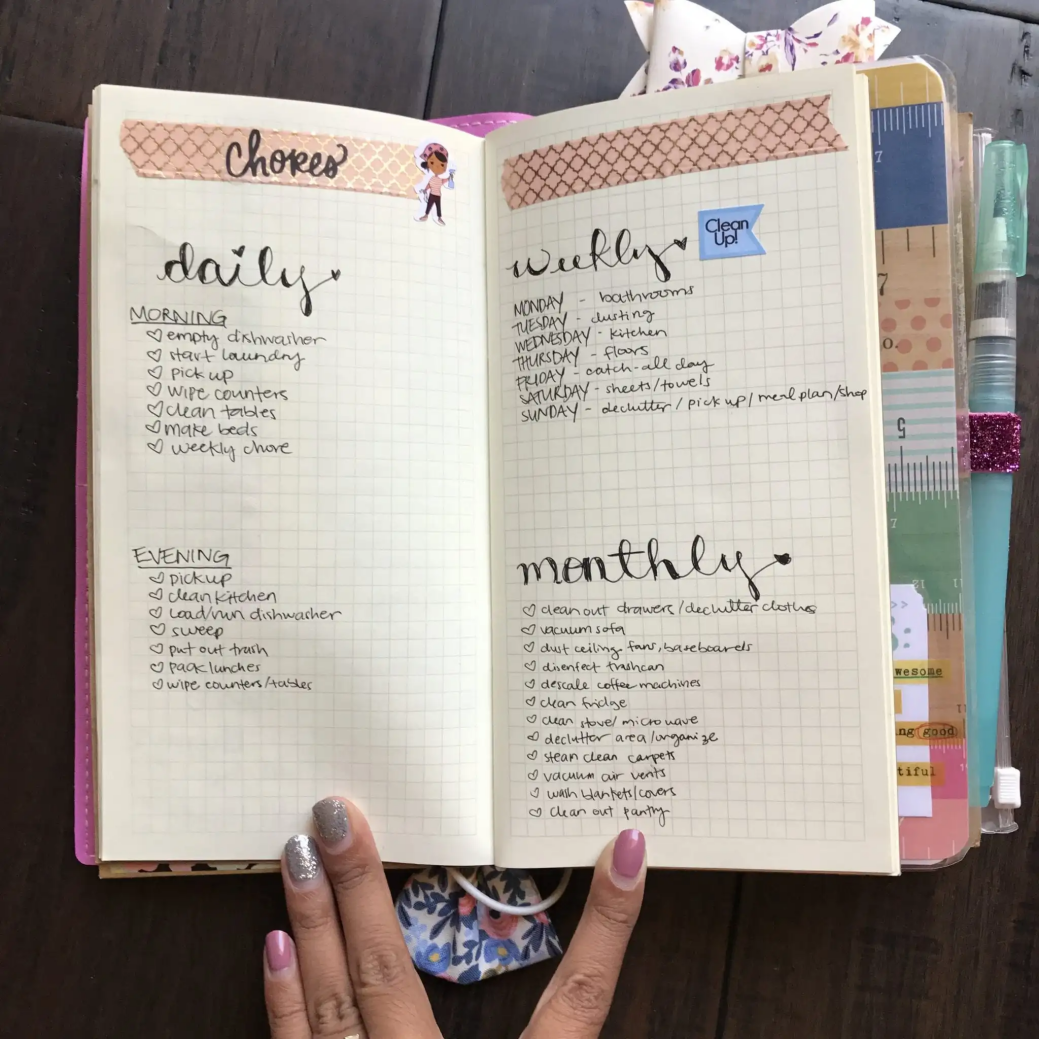 Chores
daily
MORNING
empty dishwasher
start laundry
pick up
wipe counters
clean tables
make beds
weekly chore
EVENING
pickup
clean kitchen
Load/run dishwasher
sweep
put out trash
pack lunches
wipe counters/tables
weekly
Clean
Up!
MONDAY - bathrooms
TUESDAY - dusting
WEDNESDAY - kitchen
THURSDAY - floors
FRIDAY - catch-all day
SATURDAY - sheets/towels
SUNDAY - declutter / pick up / meal plan/shop
monthly
clean out drawers/declutter clothes
vacuum sofa
dust ceiling fans, baseboards
disenfect trashcan
descale coffee machines
clean fridge
clean stove/ microwave
declutter area/organize
steam clean carpets
vacuum air vents
wash blankets/covers
clean out pantry
7
7
5
7
wesome
ng good
tiful